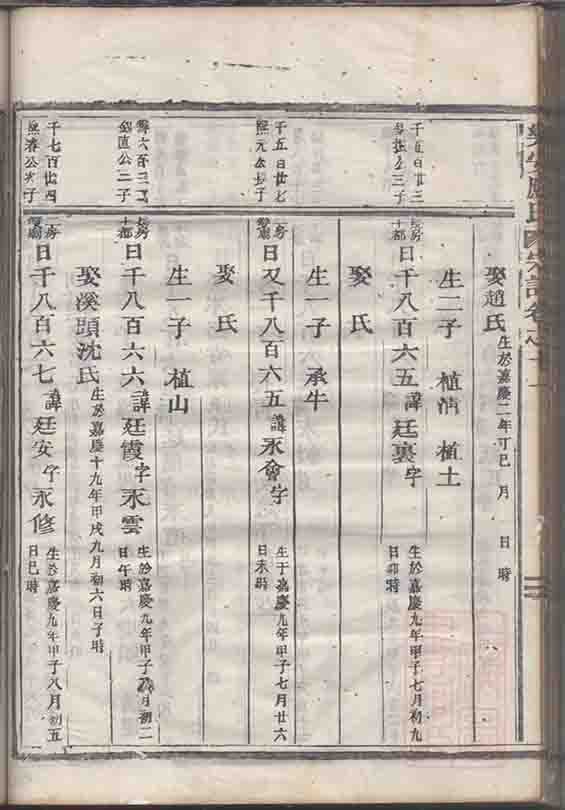 娶趙氏 生於嘉慶二年丁巳 月 日 時
生二子 植清 植土
千五百廿三
三子
長房
十都
曰千八百六五 諱廷裏 字 生於嘉慶九年甲子七月初九日卯時
娶 氏
生一子 承牛
千五百廿七
熙元公長子
二房
曰又千八百六五 諱永會 字 生于嘉慶九年甲子七月廿六日未時
娶 氏
生一子 植山
公二子
長房
十都
曰千八百六六 諱廷霞 字永雲 生於嘉慶九年甲子八月初二日午時
娶溪頭沈氏 生於嘉慶十九年甲戌九月初六日子時
千七百廿四
熙春公次子
二房
曰千八百六七 諱廷安 字永修 生於嘉慶九年甲子八月初五日巳時